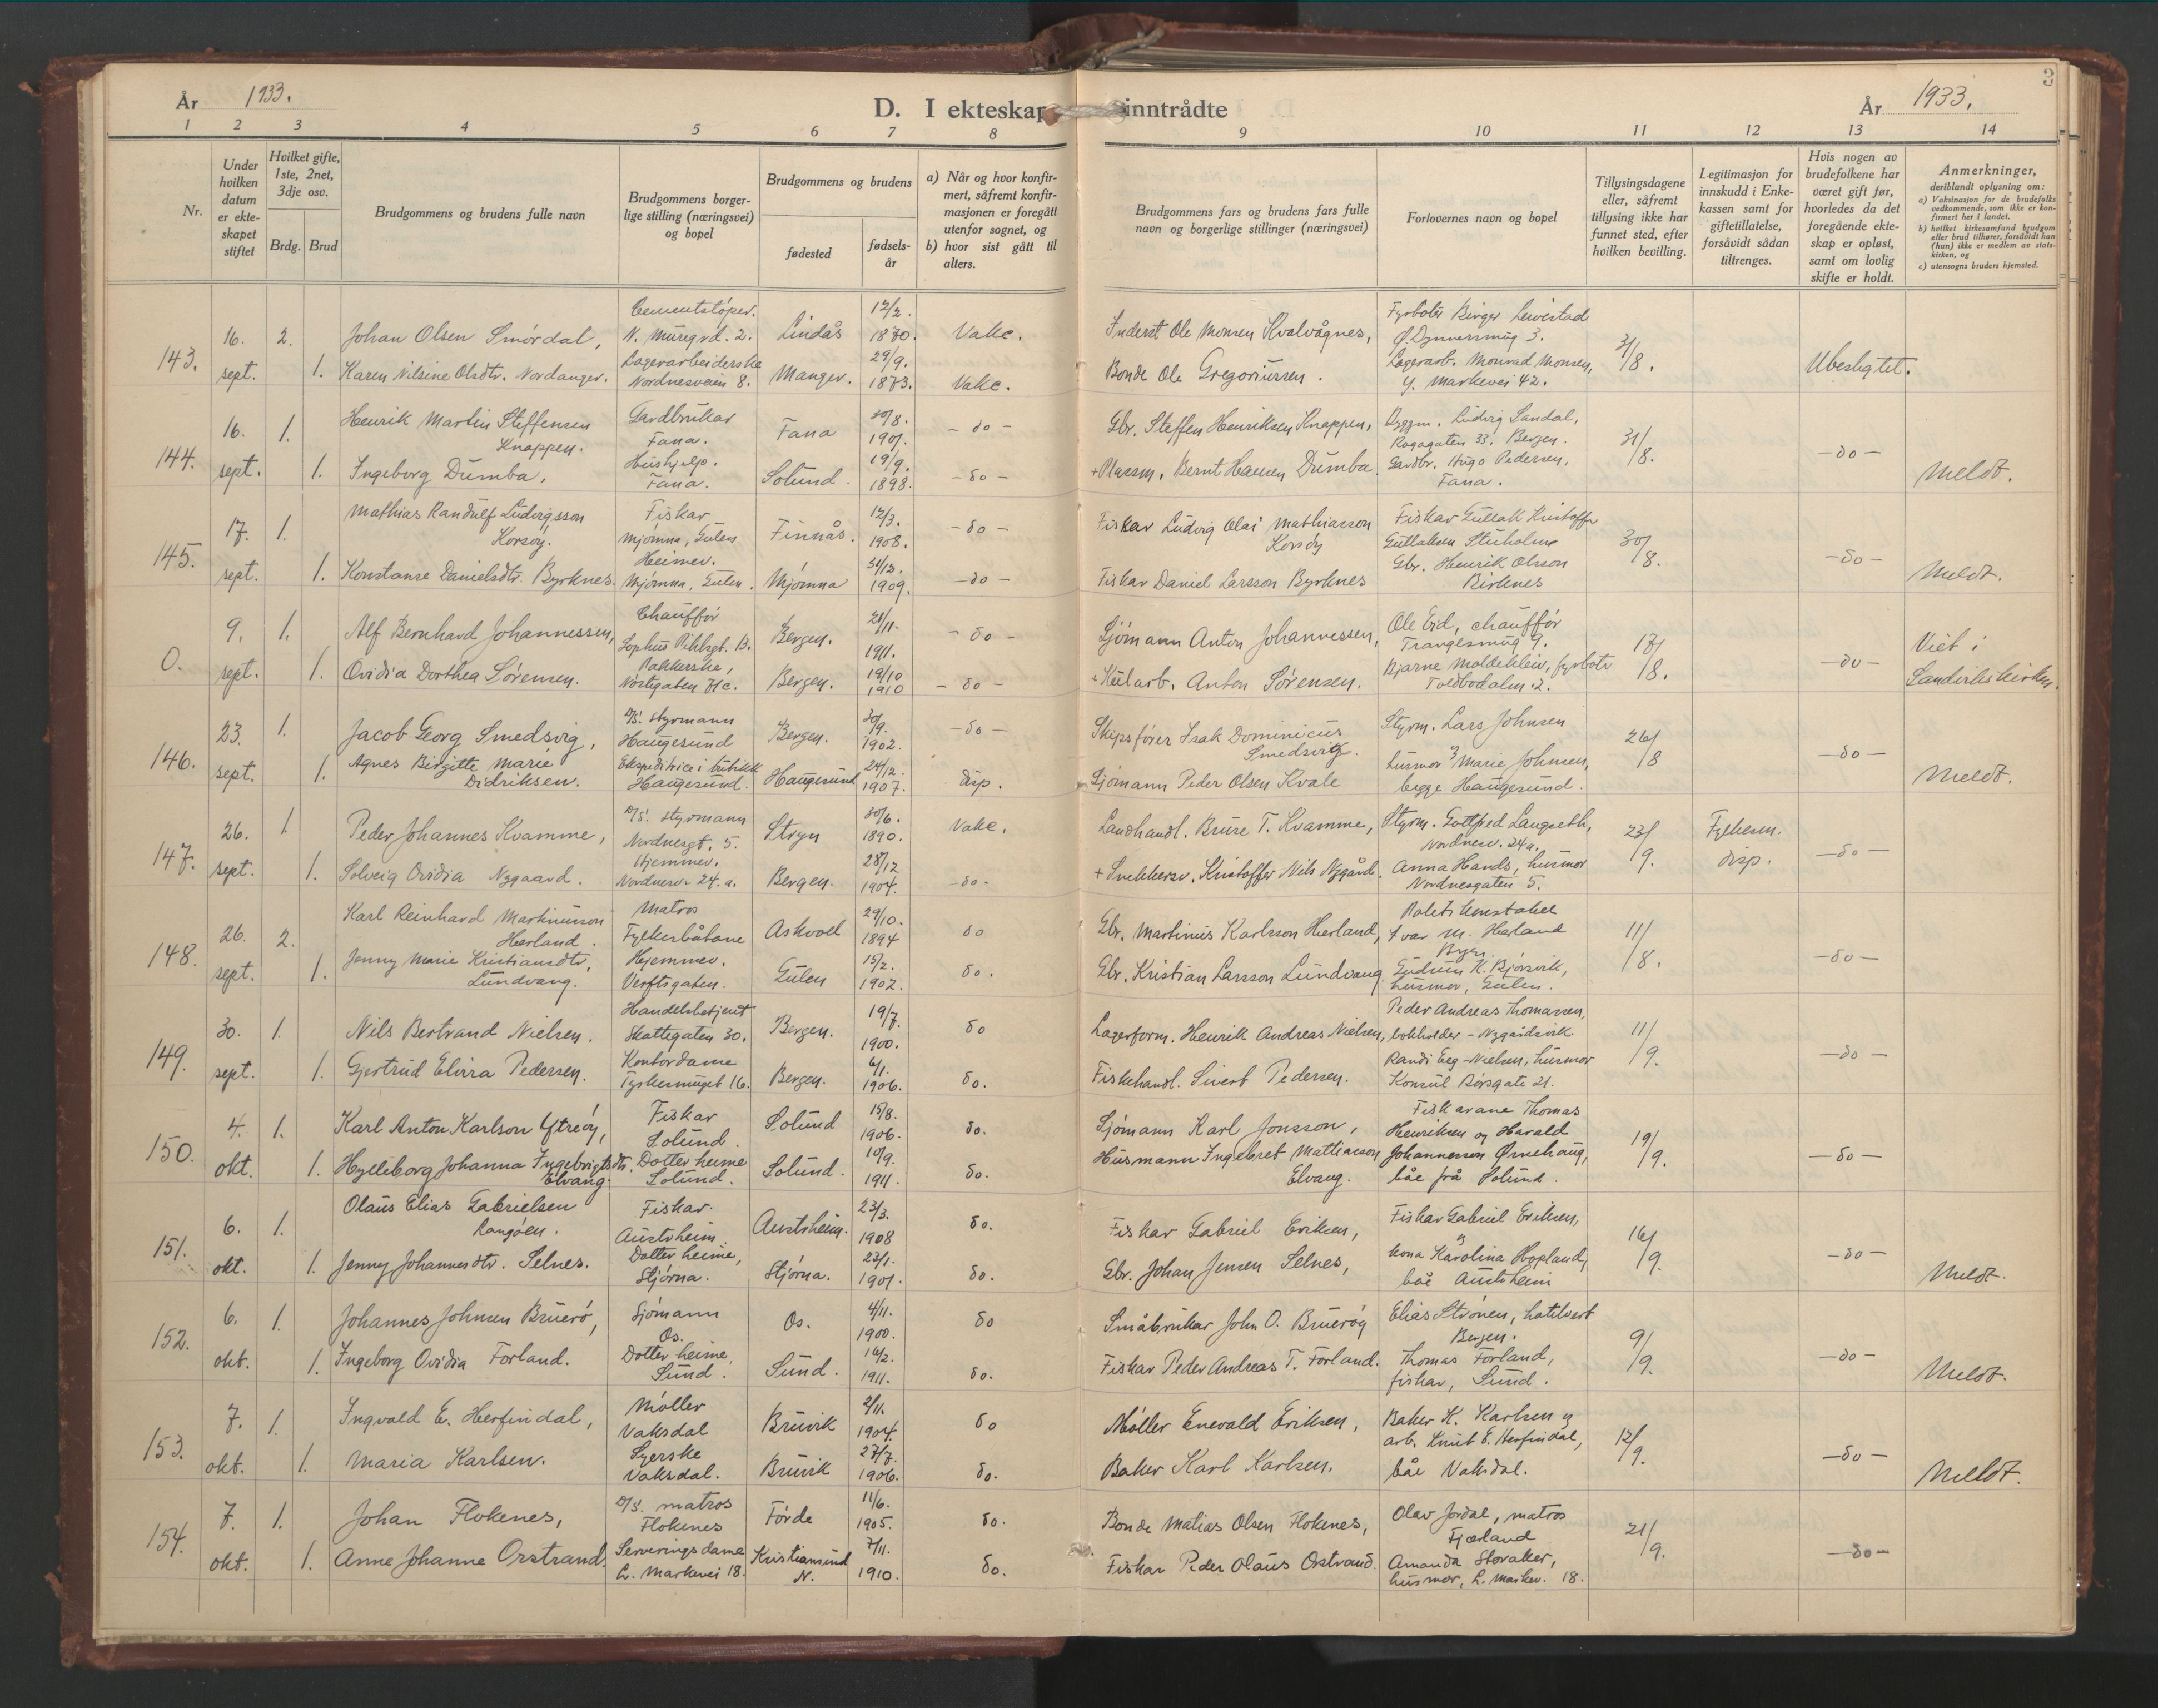 År 1933.
D. I ekteskap inntrådte
År 1933.
3
1 2 3 4 5 6 7 8 9 10 11 12 13 14
Nr.
Under hvilken datum er ekteskapet stiftet
Hvilket gifte, 1ste, 2net, 3dje osv.
Brdg. Brud
Brudgommens og brudens fulle navn
Brudgommens borgerlige stilling (næringsvei) og bopel
Brudgommens og brudens
fødested
fødselsår
a) Når og hvor konfirmert, såfremt konfirmasjonen er foregått utenfor sognet, og
b) hvor sist gått til alters.
Brudgommens fars og brudens fars fulle navn og borgerlige stillinger (næringsvei)
Forlovernes navn og bopel
Tillysingsdagene eller, såfremt tillysing ikke har funnet sted, efter hvilken bevilling.
Legitimasjon for innskudd i Enkekassen samt for giftetillatelse, forsåvidt sådan tiltrenges.
Hvis nogen av brudefolkene har været gift før, hvorledes da det foregående ekteskap er opløst, samt om lovlig skifte er holdt.
Anmerkninger,
deriblandt oplysning om:
a) Vaksinasjon for de brudefolks vedkommende, som ikke er konfirmert her i landet.
b) hvilket kirkesamfund brudgom eller brud tilhører, forsåvidt han (hun) ikke er medlem av statskirken, og
c) utensogns bruders hjemsted.
143. 16. sept. 2. Johan Olsen Smørdal, Cementstøper. N. Muregrd. 2. Lindås 12/2. 1870. Vake. Inderst Ole Monsen Kvalvågnes, Fyrbøter Birger 31/8. Ubesligtet.
1. Karen Nilsine Olsdtr. Nordanger. Lagerarbeiderske Nordnesveien 8. Manger. 29/9. 1873. Vake. Bonde Ole Gregoriussen. Lagerarb. Monrad Monsen, Y. Markevei 42.
144. 16. sept. 1. Henrik Martin Steffensen Knappen. Gardbrukar Fana. Fana 20/8. 1901. - do - Gbr. Steffen Henriksen Knappen, Byggm. Ludvig Sandal, Bergen. 31/8. - do -
1. Ingeborg Dumba, Hushjelp. Fana. Solund. 19/9. 1898. - do - + Plassm. Bernt Hansen Dumba. Gardbr. Hugo Pedersen, Fana. Meldt.
145. 17. sept. 1. Mathias Randulf Ludvigsson Korsøy. Fiskar Mjømna, Gulen Finnås. 12/3. 1908. - do - Fiskar Ludvig Olai Mathiasson Korsøy Fiskar Gullak Kristoffer Gullaksen Stuholmø 30/8. - do -
1. Konstanse Danielsdtr. Byrknes. Heimev. Mjømna, Gulen. Mjømna 31/12. 1909. - do - Fiskar Daniel Larsson Byrknes Gbr. Henrik Olsson Birknes Meldt.
0. 9. sept. 1. Alf Bernhard Johannessen, Chauffør Bergen. 21/11. 1911. - do - Sjømann Anton Johannessen, Ole Eid, chauffør Trangesmug 9. 17/8. - do - Viet i
1. Ovidia Dorthea Sørensen. Pakkerske, Nøstegaten 71c. Bergen. 19/10 1910 - do - + Kularb. Anton Sørensen. Bjarne Moldekleiv, fyrbøter Toldbodalm. 2. Sandvikskirken.
146. 23. sept. 1. Jacob Georg Smedsvig, D/S. Styrmann Haugesund Bergen. 30/9. 1902. - do - Skipsfører Isak Dominicus Smedsvig. Styrm. Lars Johnsen og 26/8 - do -
1. Agnes Birgitte Marie Didriksen. Ekspeditrice i butikk Haugesund. Haugesund 24/12. 1907. disp. Sjømann Peder Olsen Kvale husmor Marie Johnsen, begge Haugesund. Meldt.
147. 26. sept. 1. Peder Johannes Kvamme, D/S. styrmann Nordnesgt. 5. Stryn 30/6. 1890. Vake. Landhandl. Brure T. Kvamme, Styrm. Gottfred Langseth, Nordnesv. 24a. 23/9. Fylkesm. disp. - do -
1. Solveig Ovidia Nygaard. Hjemmev. Nordnesv. 24. a. Bergen. 28/12 1904. - do - + Snekkersv. Kristoffer Nils Nygård. Anna Hands, husmor Nordnesgaten 5.
148. 26. sept. 2. Karl Reinhard Martinusson Herland. Matros Fylkesbåtane Askvoll 29/10. 1894 do Gbr. Martinus Karlsson Herland, Politikonstabel Ivar M. Herland Bergen. 11/8. - do -
1. Jenny Marie Kristiansdtr. Lundvang. Hjemmev. Verftsgaten. Gulen 15/2. 1902. do. Gbr. Kristian Larsson Lundvang Gudrun K. Bjørsvik, husmor, Gulen.
149. 30. sept. 1. Nils Bertrand Nielsen. Handelsbetjent Skottegaten 30. Bergen. 19/7. 1900. do Lagerform. Henrik Andreas Nielsen, Peder Andreas Thomassen, bokholder - Nygårdsvik 11/9. - do -
1. Gjertrud Elvira Pedersen. Kontordame Tyskesmuget 16. Bergen. 6/1. 1906. do. Fiskehandl. Sivert Pedersen. Randi Eeg-Nielsen, husmor Konsul Børsgate 21.
150. 4. okt. 1. Karl Anton Karlson Ytreøy, Fiskar Solund. Solund 15/8. 1906. do. Sjømann Karl Jonsson, Fiskarane Thomas Henriksen og Harald 19/9. - do -
1. Hylleborg Johanna Ingebrigtsdtr. Elvang. Dotter heime Solund. Solund. 10/9. 1911. do. Husmann Ingebret Mathiasson Elvang. Johannesson Ørnehaug, båe frå Solund.
151. 6. okt. 1. Olaus Elias Gabrielsen Langøen. Fiskar. Austrheim Austrheim. 23/3. 1908 do. Fiskar Gabriel Eriksen, Fiskar Gabriel Eriksen, og 16/9. - do -
1. Jenny Johannesdtr. Selnes. Dotter heime, Stjørna. Stjørna. 23/1. 1901. do. Gbr. Johan Jensen Selnes, kona Karolina Hopland, båe Austrheim Meldt.
152. 6. okt. 1. Johannes Johnsen Bruerø, Sjømann Os. Os. 4/11. 1900. do Småbrukar John O. Bruerøy Elias Strønen, Bergen. 9/9. - do -
1. Ingeborg Ovidia Forland. Dotter heime, Sund. Sund. 16/2. 1911. do. Fiskar Peder Andreas T. Forland. Thomas Forland, fiskar, Sund. Meldt.
153. 7. okt. 1. Ingvald E. Herfindal, Møller Vaksdal Bruvik 2/11. 1904. do Møller Enevald Eriksen, Baker K. Karlsen og 12/9. - do -
1. Maria Karlsen. Syerske Vaksdal. Bruvik 27/7. 1906. do. Baker Karl Karlsen. arb. Knut E. Herfindal, båe Vaksdal. Meldt.
154. 7. okt. 1. Johan Flokenes, D/S. matros Flokenes Førde 11/6. 1905. do. Bonde Matias Olsen Flokenes, Olav Jordal, matros Fjærland 21/9. - do -
1. Anne Johanne Orstrand. Serveringsdame L. Markevei 18. Kristiansund N. 7/11. 1910. do. Fiskar Peder Olaus Orstrand. Amanda Storaker, husmor, L. Markev. 18.